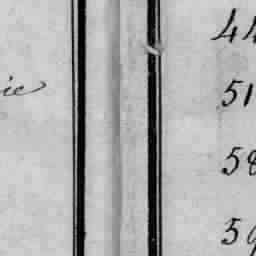 44
ie
51
58
59